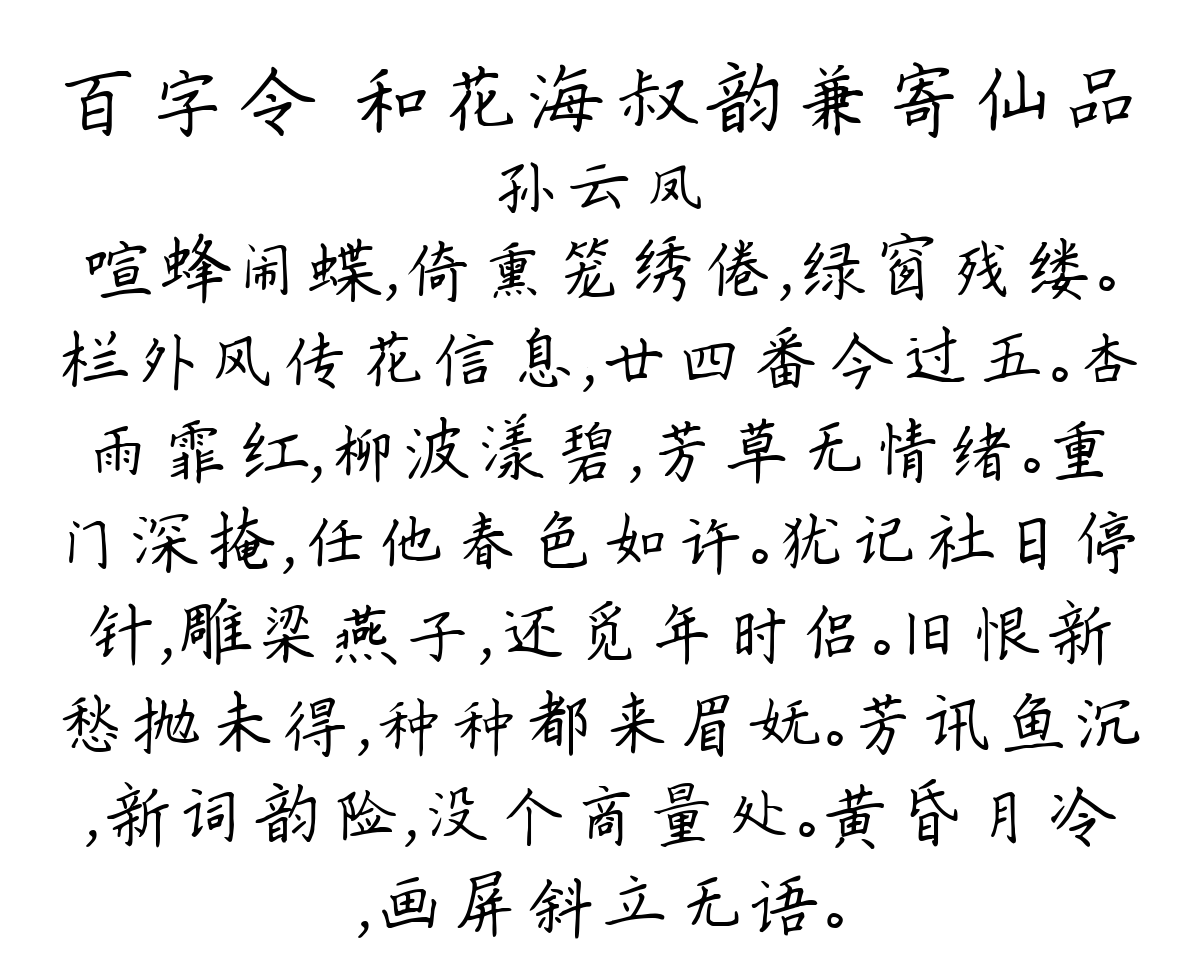 百字令 和花海叔韵兼寄仙品
孙云凤
喧蜂闹蝶,倚熏笼绣倦,绿窗残缕。
栏外风传花信息,廿四番今过五。杏
雨霏红,柳波漾碧,芳草无情绪。重
门深掩,任他春色如许。犹记社日停
针,雕梁燕子,还觅年时侣。旧恨新
愁抛未得,种种都来眉妩。芳讯鱼沉
,新词韵险,没个商量处。黄昏月冷
,画屏斜立无语。